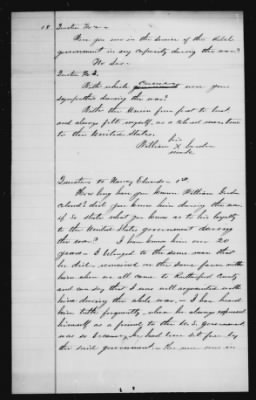 18 Question No
Were you ever in the service of the rebel
government in any capacity during the war?
No Sir.
Question No 3.
With which were your
sympathies during the war?
With the Union from first to last,
and always felt myself, as a colored man true
to the United States.
his
William X
mark
Question to Harvey 1st
How long have you known William
colored? did you know him during the war
if so state what you know as to his loyalty
to the United States government during
the war? I have known him over 20
years. I belonged to the same man that
he did, remained on the same farm with
him when we all came to Rutherford County
and can say that I was well acquainted with
him during the whole war. I have heard
him talk frequently, when he always expressed
himself as a friend to the U.S. Government
was so because he had been set free by
the said government. the war was on